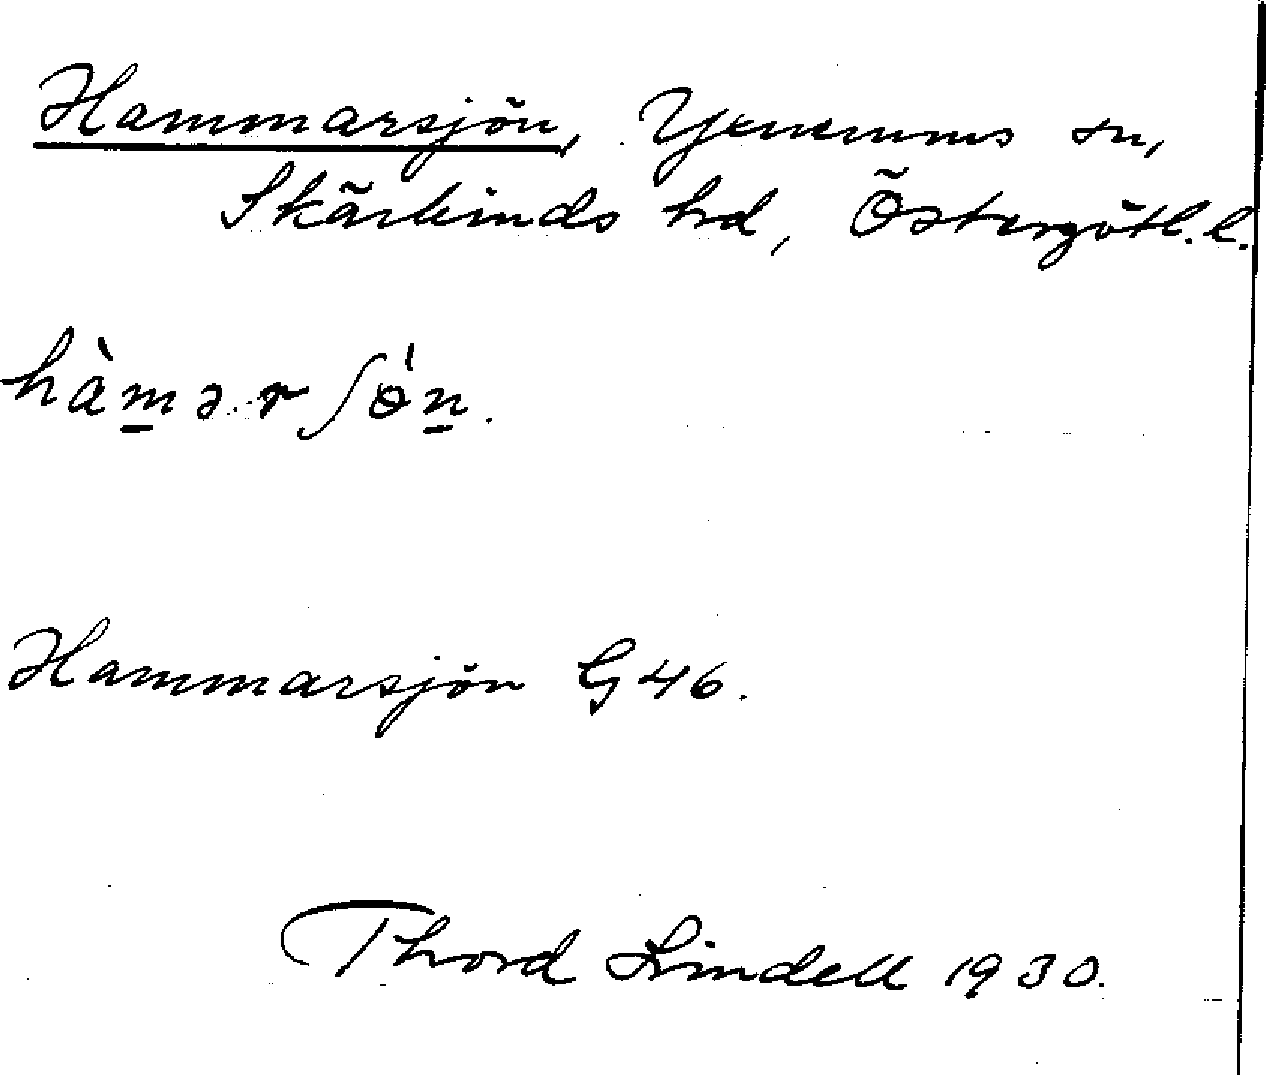 Hammarsjön, Yxnerums sn,
Skärkinds hd, Östergötl. l.
hàmərʃön.
Hammarsjön G46.
Thord Lindell 1930.